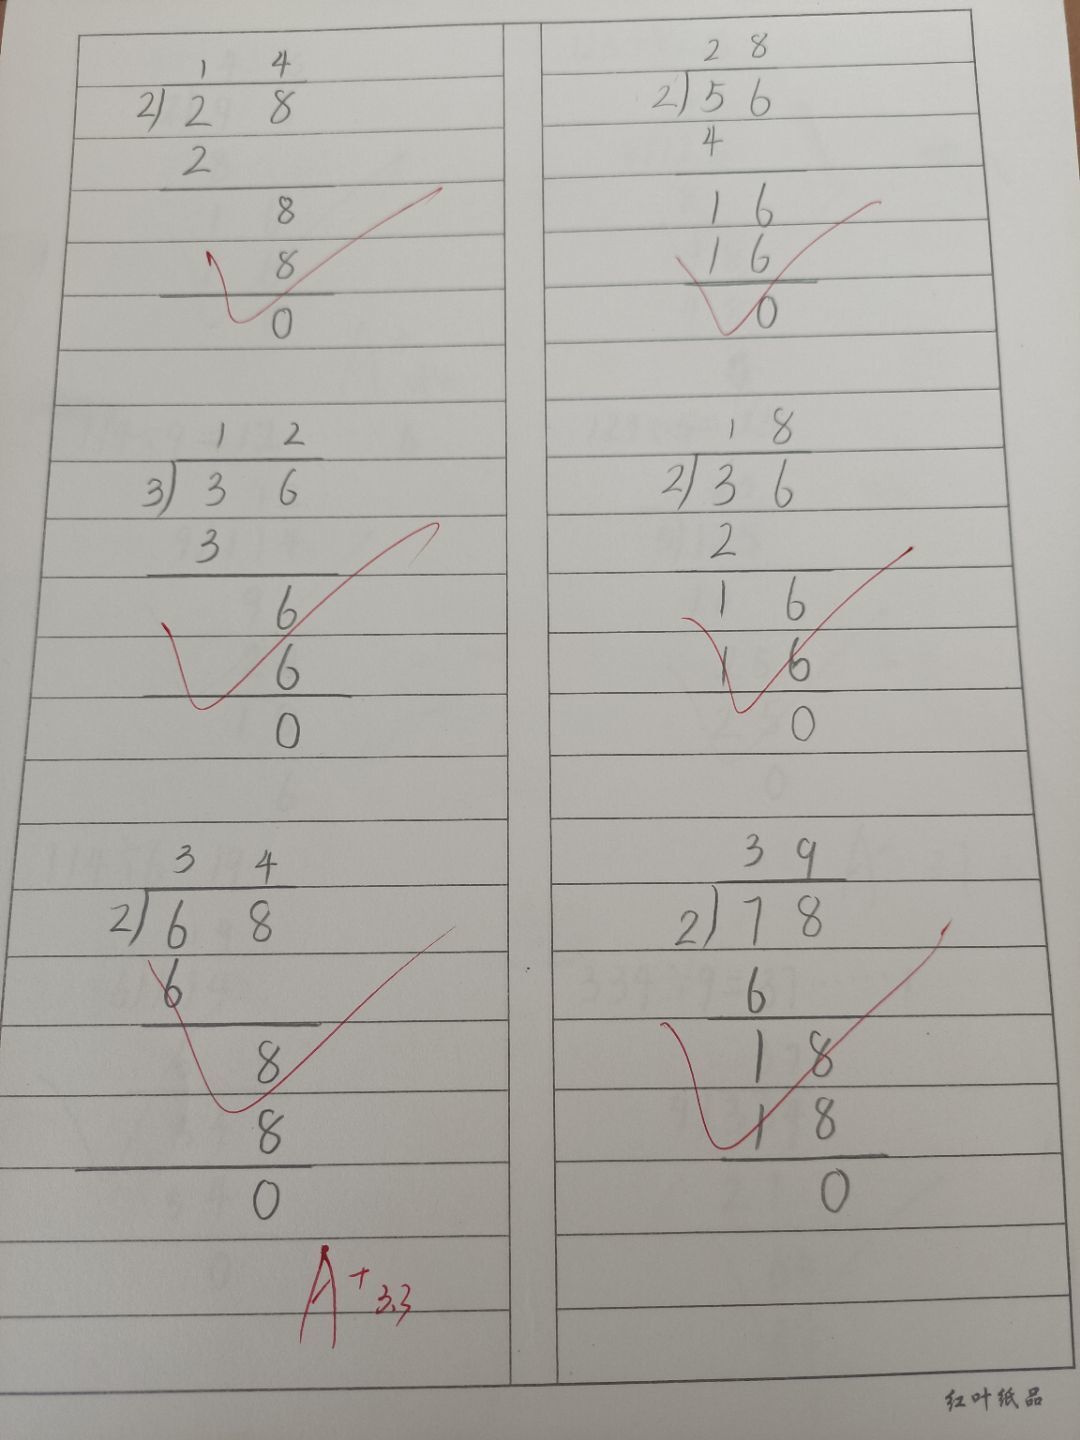 1 4
2)2 8
2
8
8
0
2 8
2)5 6
4
1 6
1 6
0
1 2
3)3 6
3
6
6
0
1 8
2)3 6
2
1 6
1 6
0
3 4
2)6 8
6
8
8
0
3 9
2)7 8
6
1 8
1 8
0
A+ 3.3
红叶纸品